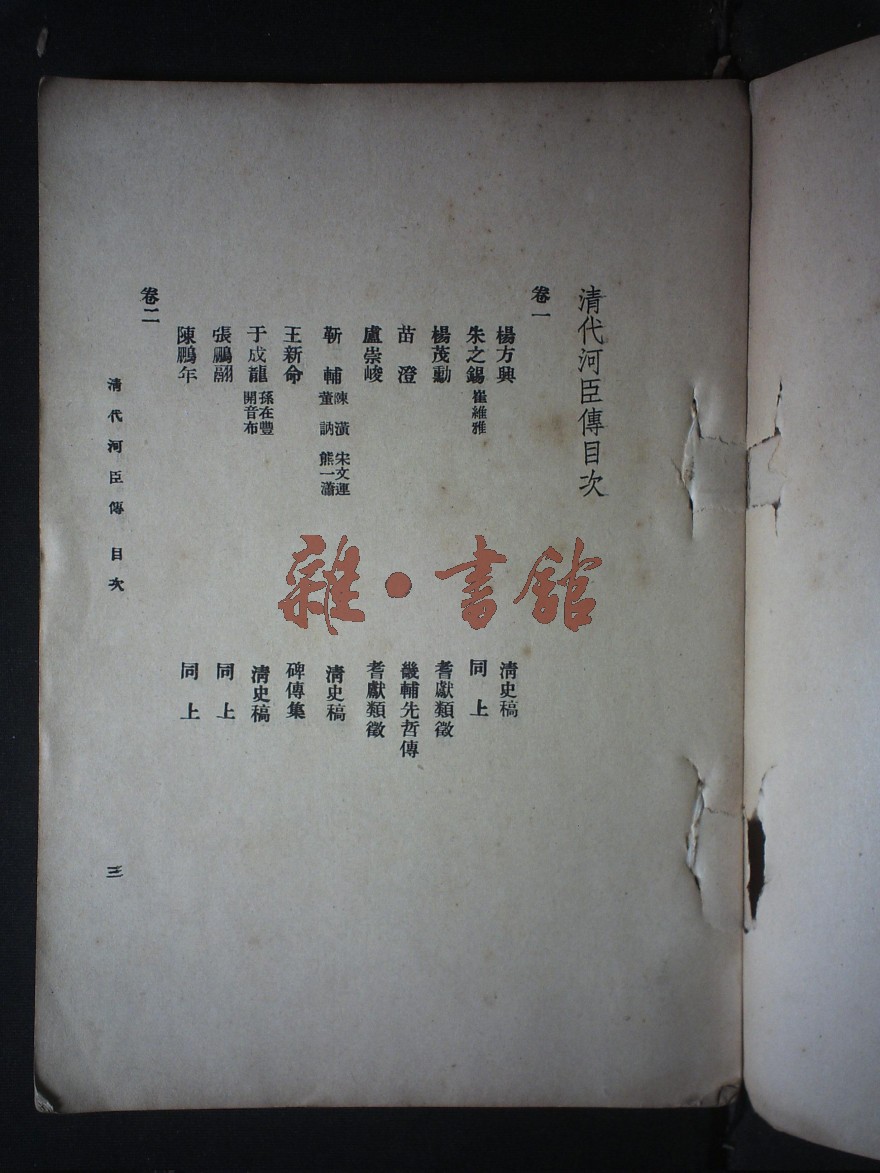 清代河臣傳目次
卷一
楊方興 清史稿
朱之錫 崔維雅 同上
楊茂勳 耆獻類徵
苗澄 畿輔先哲傳
盧崇峻 耆獻類徵
靳輔 陳潢 宋文運 董訥 熊一瀟 清史稿
王新命 碑傳集
于成龍 孫在豐 開音布 清史稿
張鵬翮 同上
陳鵬年 同上
卷二
清代河臣傳 目次
三
雜·書館